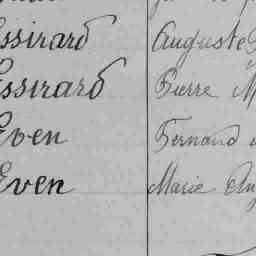 ssirard Auguste
ssirard Pierre M
Even Fernand
Even Marie Ang